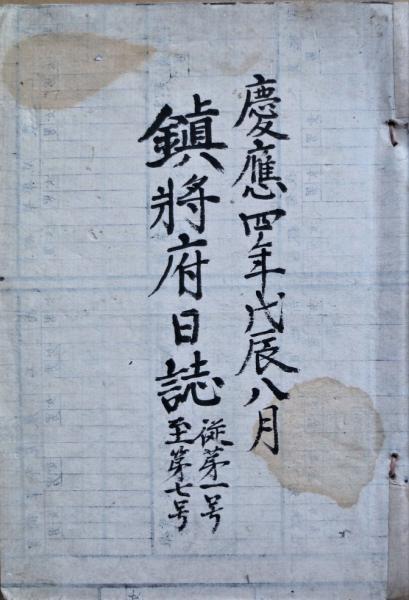 慶應四年戊辰八月
鎮將府日誌
従第一号
至第七号